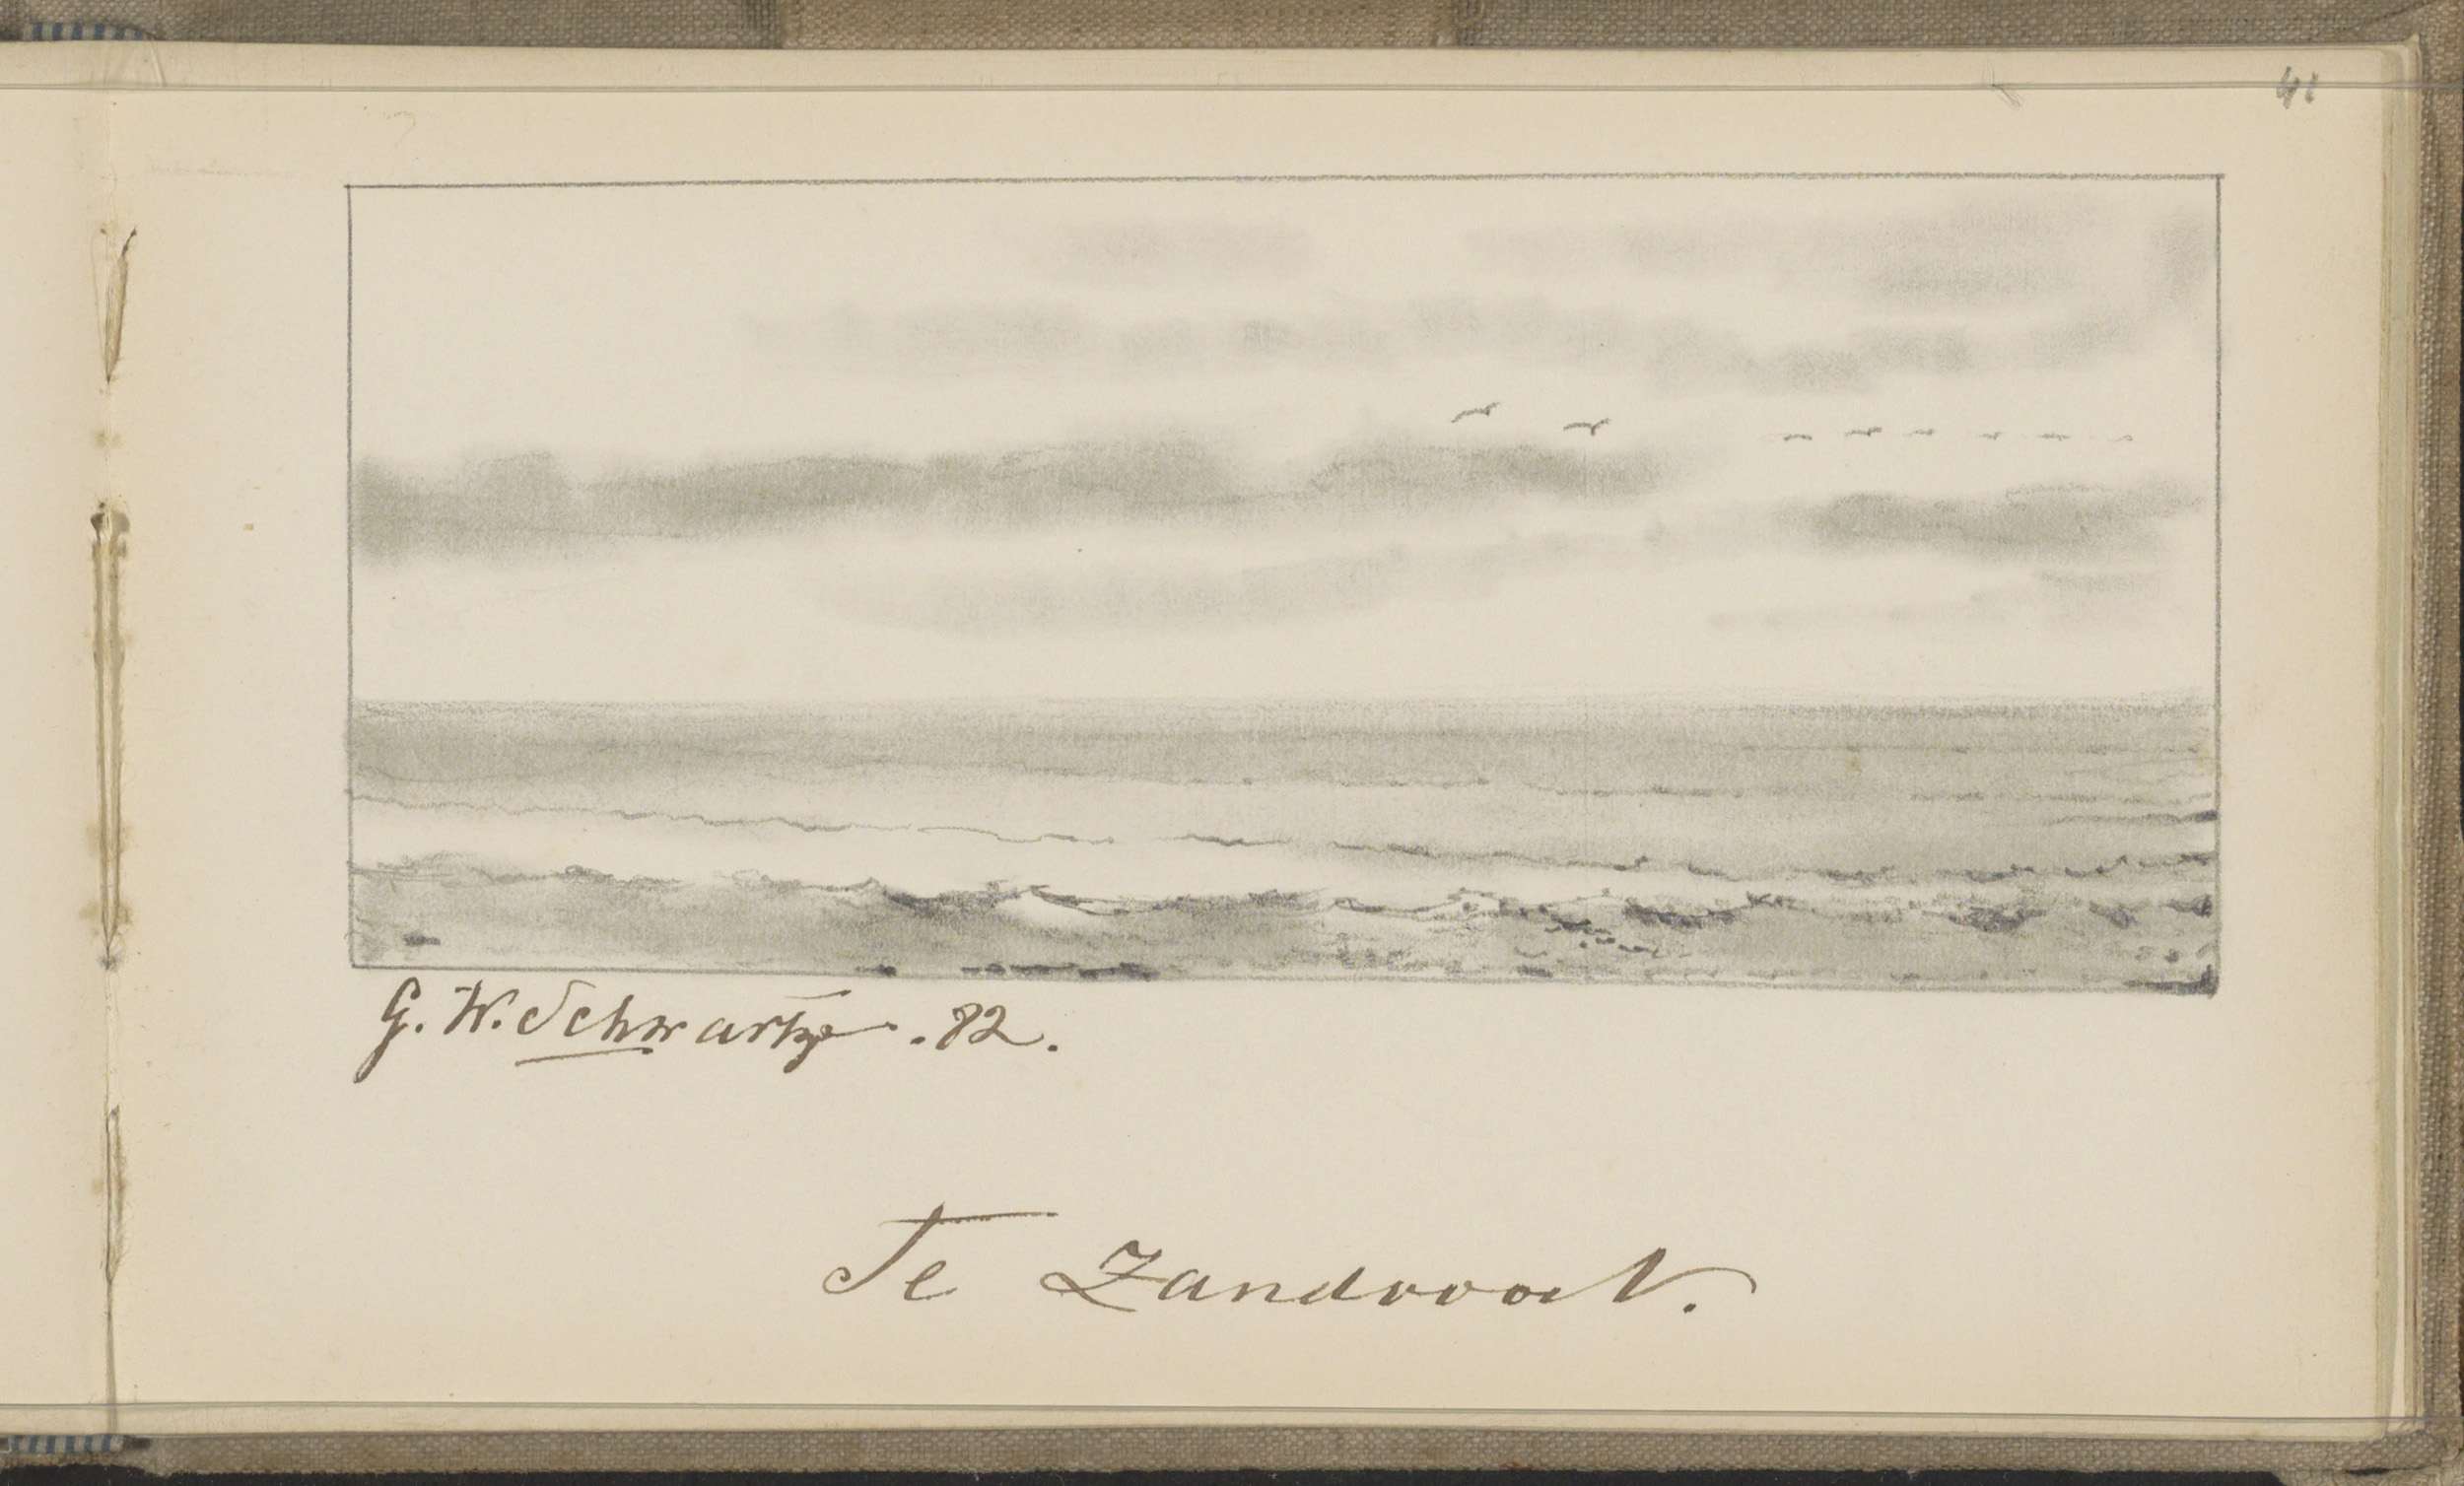 41
G. W. Schwartze. 82.
Te Zandvoort.